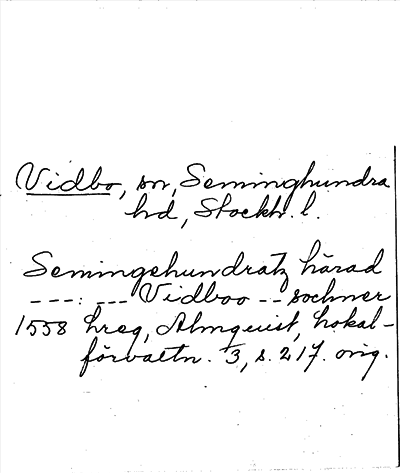 Vidbo, sn, Seminghundra
hd, Stockh. l.
Semingehundratz härad
---:--- Vidboo -- sochner
1558 hreg, Almquist, Lokal-
förvaltn. 3, s. 217. orig.